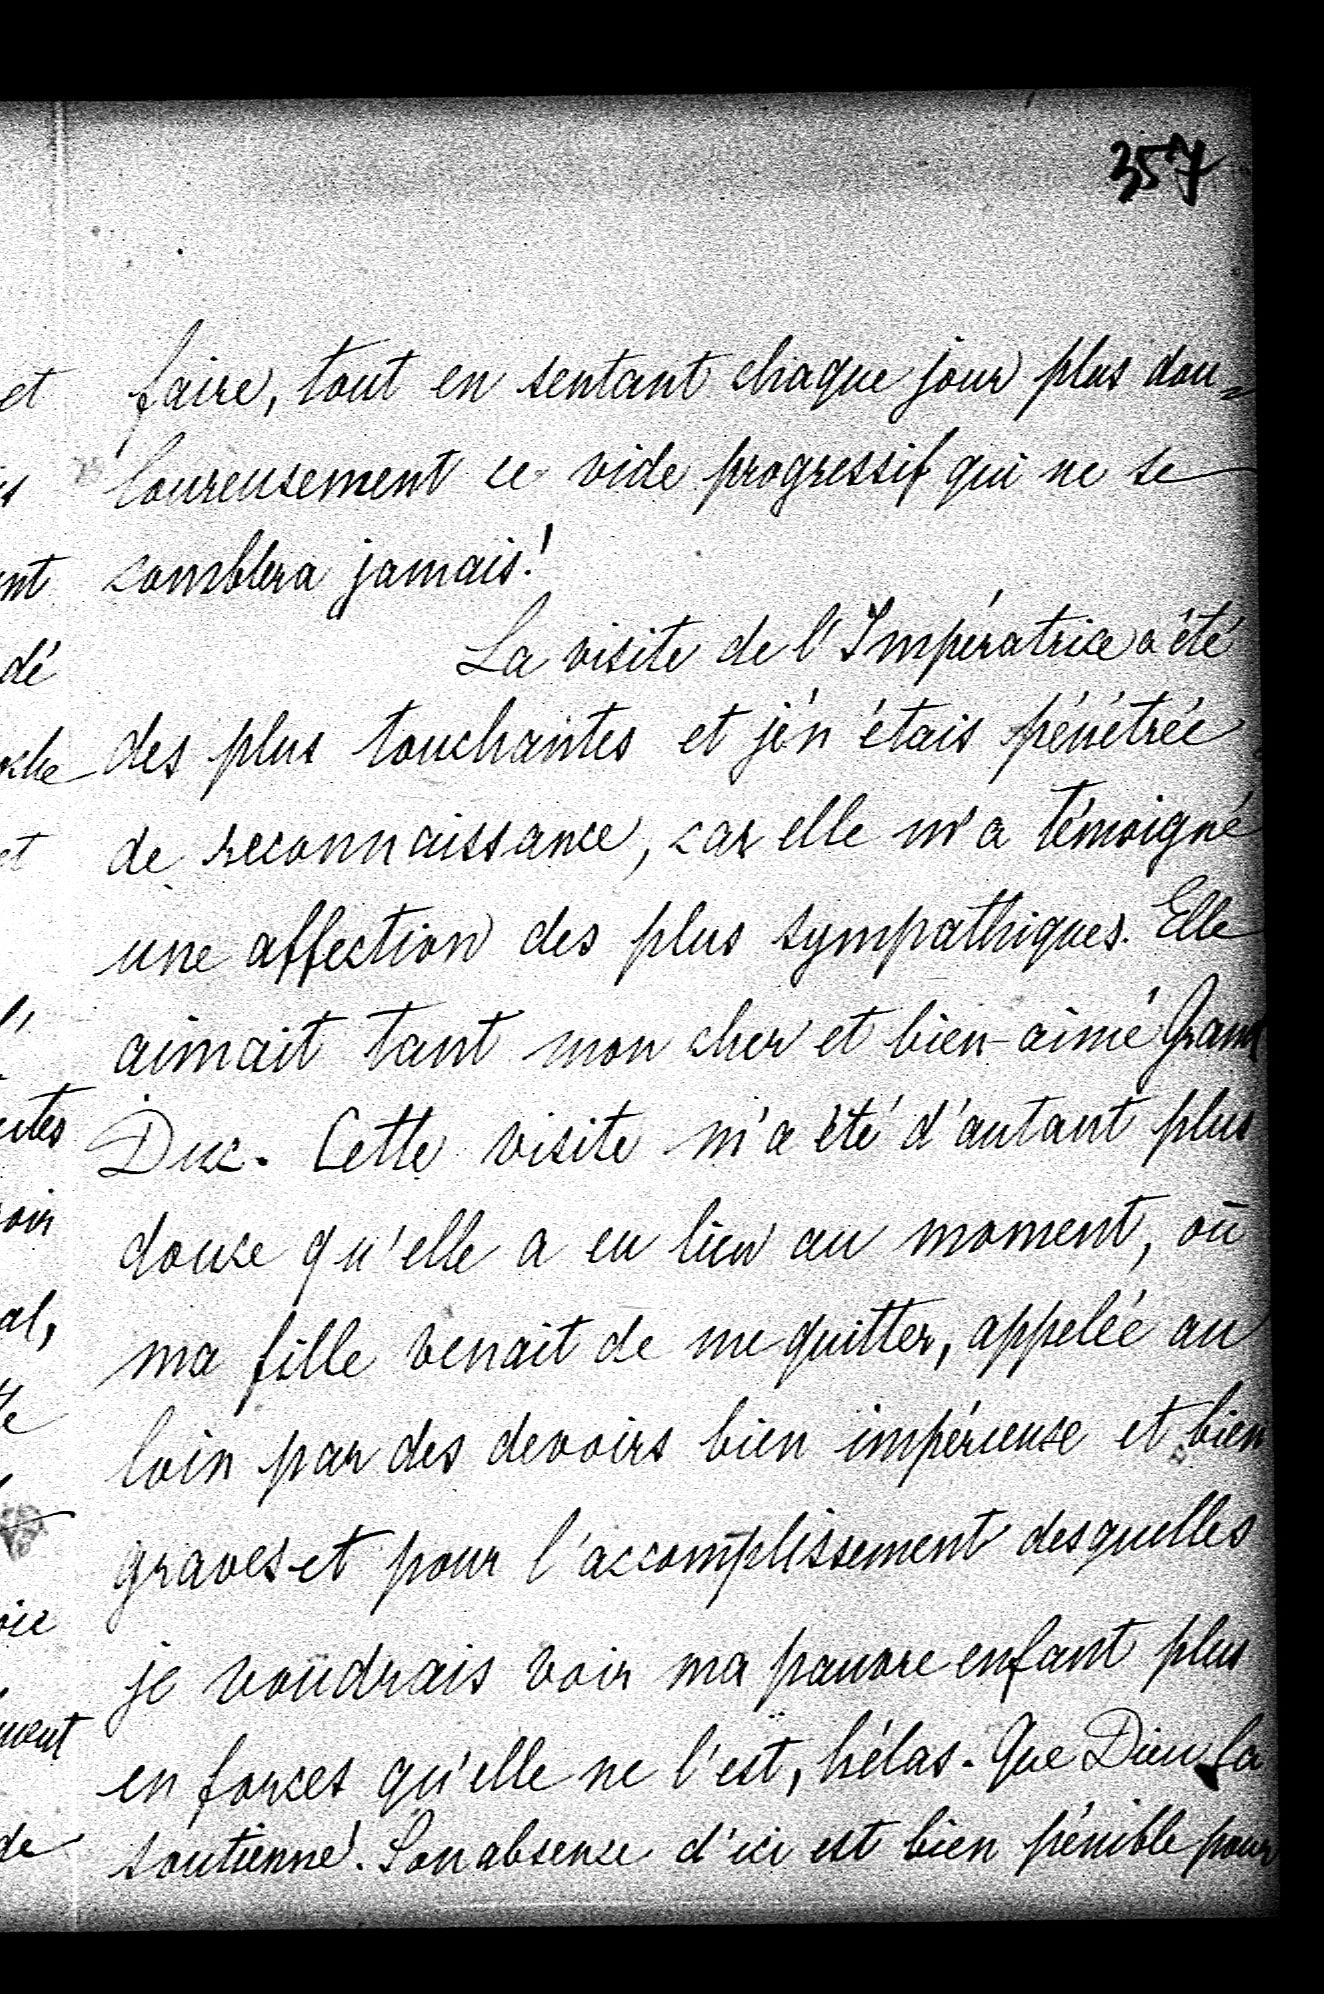 357
faire, tout en sentant chaque jour plus dou=
loureusement ce vide progressif qui ne se
comblera jamais!
La visite de l'Impératrice a été
des plus touchantes et j'en étais pénétrée
de reconnaissance, car elle m'a témoigné
une affection des plus sympathiques. Elle
aimait tant mon cher et bien-aimé Grand
Duc. Cette visite m'a été d'autant plus
douce qu'elle a eu lieu au moment, où
ma fille venait de me quitter, appelée au
loin par des devoirs bien impérieuse et bien
graves et pour l'accomplissement desquelles
je voudrais voir ma pauvre enfant plus
en forces qu'elle ne l'est, hélas. Que Dieu la
soutienne! Son absence d'ici est bien pénible pour